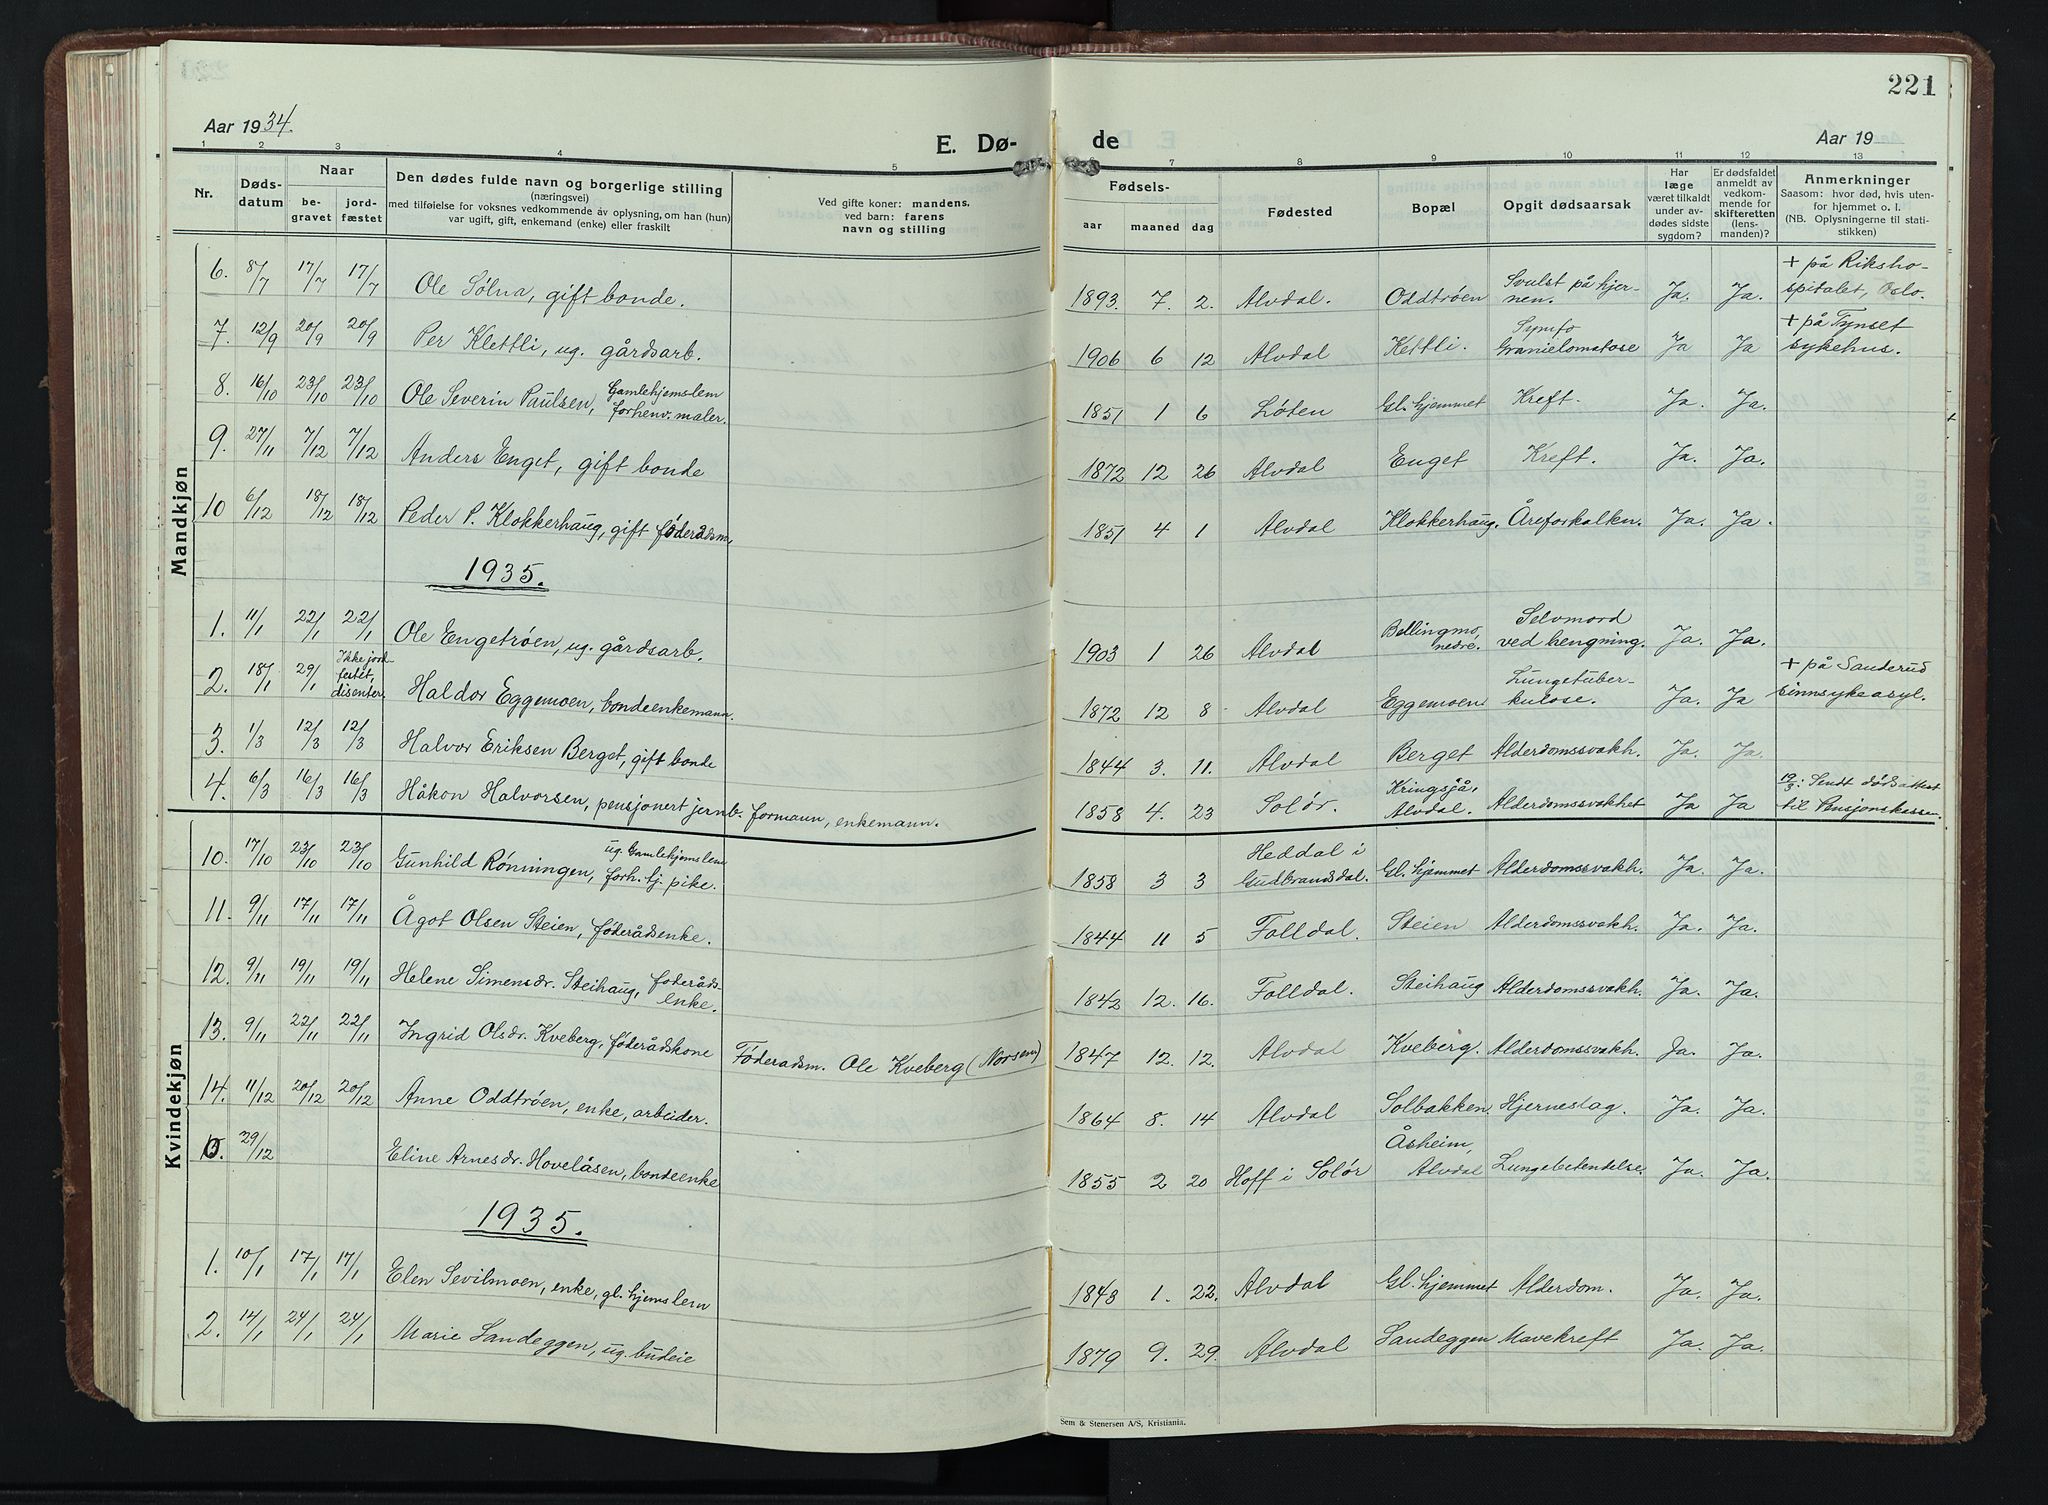 221
Aar 1934.
E. Dø-
de
Aar 19
1 2 3 4 5 7 8 9 10 11 12 13
Nr.
Døds-
datum
Naar
be-
gravet
jord-
fæstet
Den dødes fulde navn og borgerlige stilling
(næringsvei)
med tilføielse for voksnes vedkommende av oplysning, om han (hun)
var ugift, gift, enkemand (enke) eller fraskilt
Ved gifte koner: mandens,
ved barn: farens
navn og stilling
Fødsels-
aar maaned dag
Fødested
Bopæl
Opgit dødsaarsak
Har
læge
været tilkaldt
under av-
dødes sidste
sygdom?
Er dødsfaldet
anmeldt av
vedkom-
mende for
skifteretten
(lens-
manden)?
Anmerkninger
Saasom: hvor død, hvis uten-
for hjemmet o. l.
(NB. Oplysningerne til stati-
stikken)
Mandkjøn
6. 8/7 17/7 17/7 Ole Sølna, gift bonde. 1893. 7. 2. Alvdal. Oddtrøen Svulst på hjer-
nen. Ja. Ja. + på Riksho-
spitalet, Oslo.
7. 12/9 20/9 20/9 Per Klettli, ug. gårdsarb. 1906 6 12 Alvdal Kettli. Ja Ja + på Tynset
sykehus.
8. 16/10 23/10 23/10 Ole Severin Paulsen, Gamlehjemslem
forhenv. maler. 1851 1 6 Løten Gl. hjemmet Kreft. Ja. Ja.
9. 27/11 7/12 7/12 Anders Enget, gift bonde 1872 12 26 Alvdal Enget Kreft. Ja. Ja.
10 6/12 18/12 18/12 Peder P. Klokkerhaug, gift føderådsm. 1851 4 1 Alvdal Klokkerhaug. Åreforkalkn. Ja. Ja.
1935.
1. 11/1 22/1 22/1 Ole Engetrøen, ug. gårdsarb. 1903 1 26 Alvdal Bellingmo,
nedre. Selvmord
ved hengning. Ja. Ja.
2. 18/1 29/1 Ikke jord-
festet,
disenter. Haldor Eggemoen, bondeenkemann. 1872 12 8 Alvdal Eggemoen Lungetuber-
kulose. Ja. Ja + på Sanderud
sinnsykeasyl.
3. 1/3 12/3 12/3 Halvor Eriksen Berget, gift bonde 1844 3. 11. Alvdal Berget Alderdomssvakh. Ja. Ja.
4. 6/3 16/3 16/3 Håkon Halvorsen, pensjonert jernb. formann, enkemann. 1858 4. 23 Solør. Kringsjå,
Alvdal. Alderdomssvakhet Ja Ja 19/3: Sendt dødsattest
til Pensjonskassen.
Kvindekjøn
10. 17/10 23/10 23/10 Gunhild Rønningen, ug. Gamlehjemslem
forh. tj. pike. 1858 3 3 Heddal i
Gudbrandsdal. Gl. hjemmet Alderdomssvakh. Ja. Ja.
11. 9/11 17/11 17/11 Ågot Olsen Steien, føderådsenke. 1844 11 5 Folldal. Steien Alderdomssvakh. Ja. Ja.
12. 9/11 19/11 19/11 Helene Simensdr. Steihaug, føderåds-
enke. 1842 12. 16. Folldal. Steihaug Alderdomssvakh. Ja. Ja.
13. 9/11 22/11 22/11 Ingrid Olsdr. Kveberg, føderådskone Føderadsm. Ole Kveberg (Norsem) 1847 12. 12. Alvdal Kveberg. Alderdomssvakh. Ja. Ja.
14. 11/12 20/12 20/12 Anne Oddtrøen, enke, arbeider. 1864 8. 14 Alvdal Solbakken Hjerneslag. Ja. Ja.
15. 29/12 Eline Arnesdr. Hovelåsen, bondeenke 1855 2 20 Hoff i Solør Åsheim,
Alvdal Lungebetendelse. Ja. Ja.
1935.
1. 10/1 17/1 17/1 Elen Sevilmoen, enke, gl. hjemslem 1843 1. 22. Alvdal Gl. hjemmet Alderdom. Ja. Ja.
2. 14/1 24/1 24/1 Marie Sandeggen, ug. budeie 1879 9. 29. Alvdal Sandeggen Mavekreft Ja. Ja.
Sem & Stenersen A/S, Kristiania.